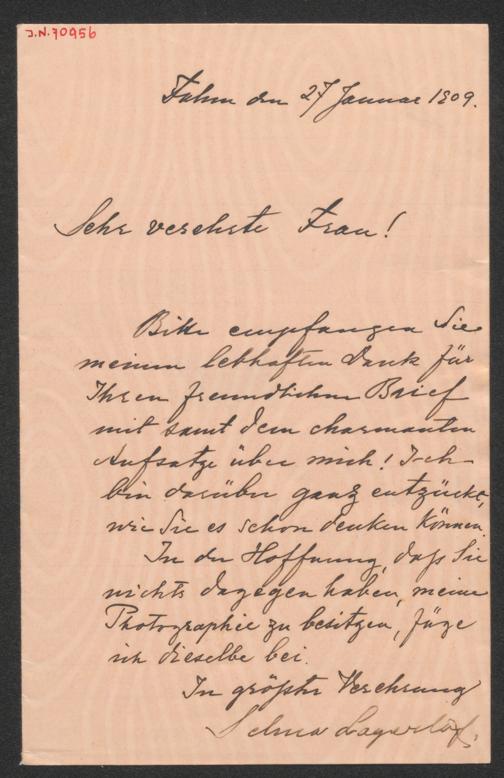 J.N. 70956
Falun den 27 Januar 1909.
Sehr verehrte Frau!
Bitte empfangen Sie
meinen lebhaften Dank für
Ihren freundlichen Brief
mit samt dem charmanten
Aufsatze über mich! Ich
bin darüber ganz entzückt,
wie Sie es schon denken können.
In der Hoffnung, daß Sie
nichts dagegen haben, meine
Photographie zu besitzen, füge
ich dieselbe bei.
In größter Verehrung
Selma Lagerlöf.